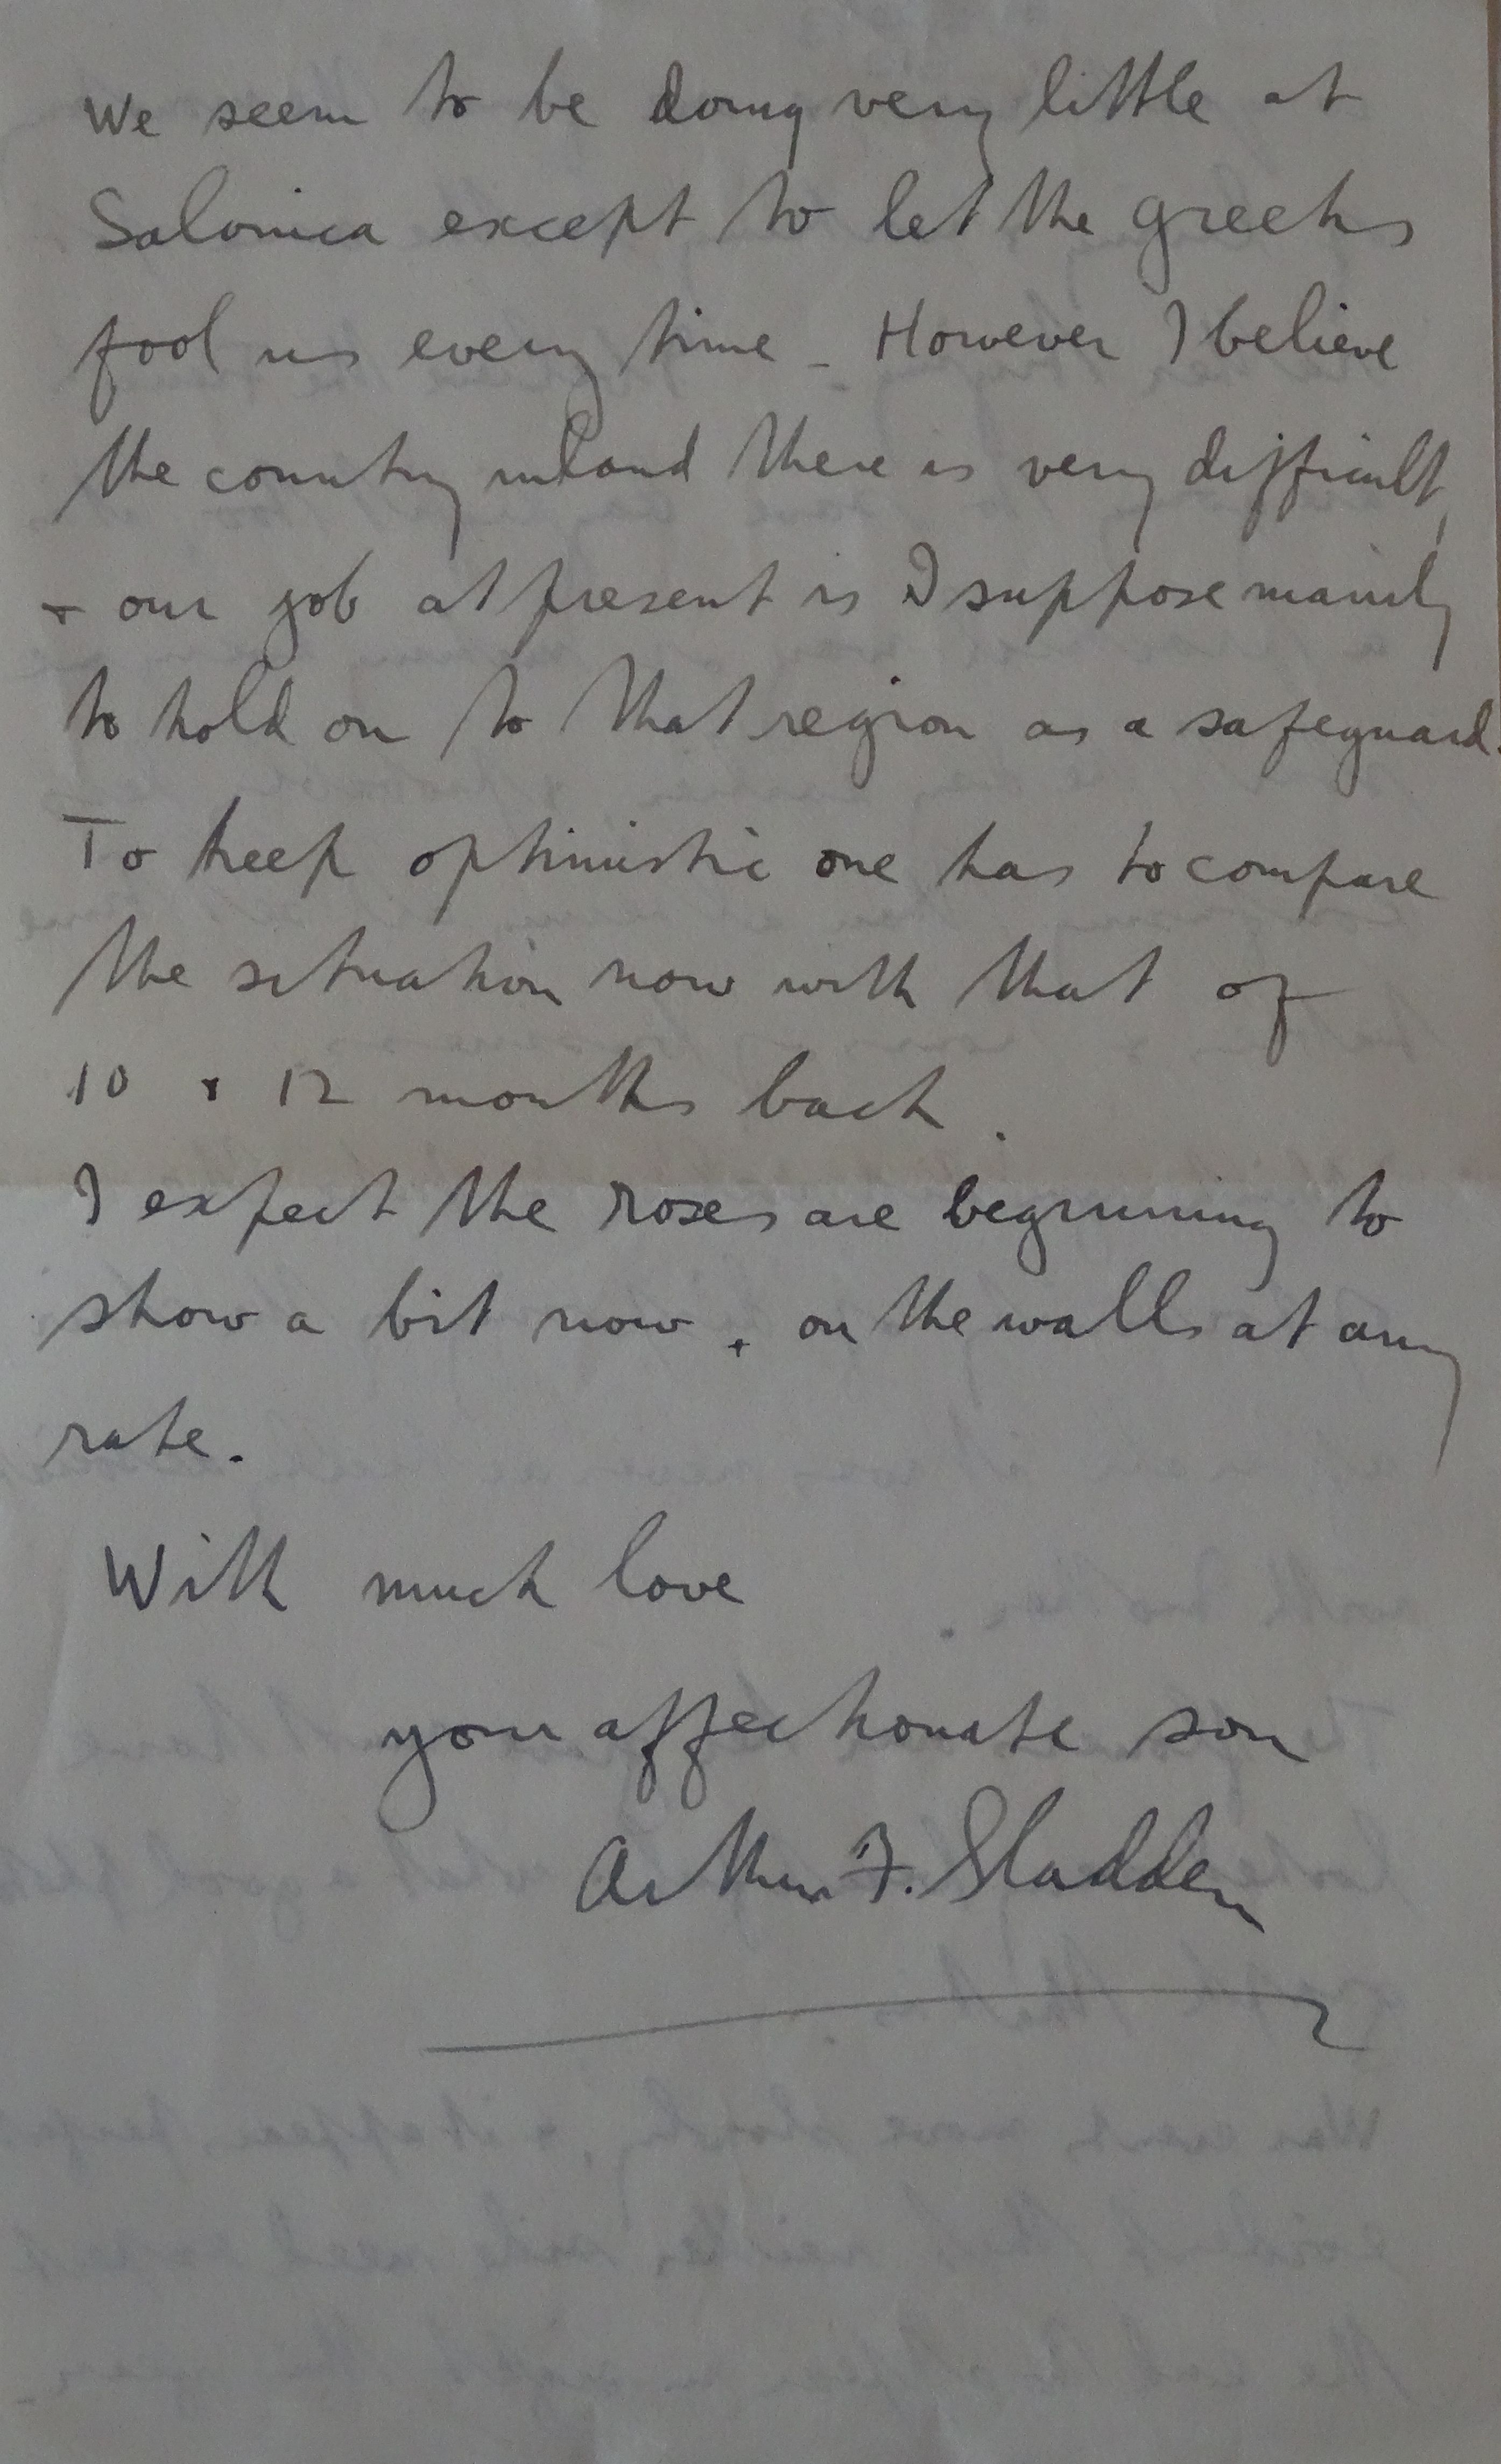 We seem to be doing very little at
Salonica except to let the greeks
fool us every time - However I believe
the country inland there is very difficult,
+ our job at present is I suppose mainly
to hold on to that region as a safeguard.
To keep optimistic one has to compare
the situation now with that of
10 + 12 months back.
I expect the roses are beginning to
show a bit now, on the walls at any
rate.
With much love
your affectionate son
Arthur F. Sladden